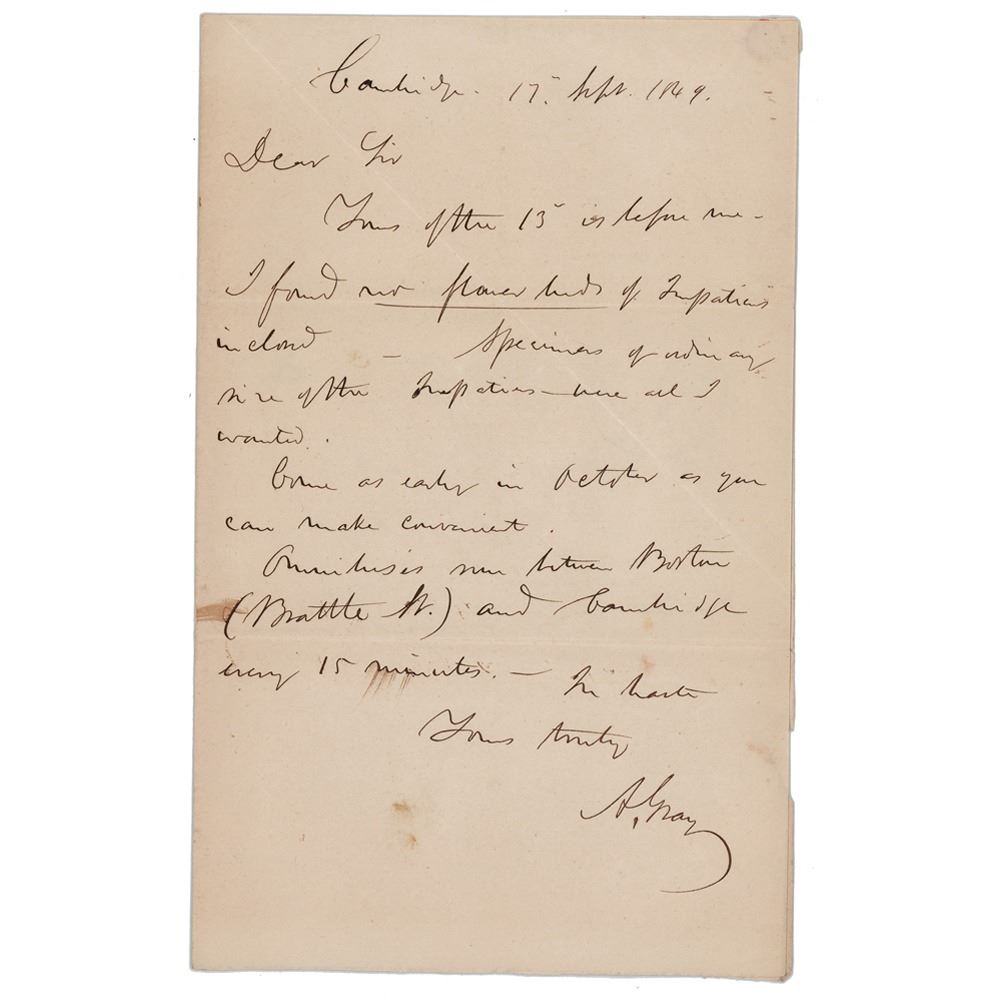 Cambridge. 17. Sept. 1849.
Dear Sir
Yours of the 15 is before me -
I found no flower buds of Impatiens
inclosed - Specimens of ordinary
size of the Impatiens - were all I
wanted.
Come as early in October as you
can make convenient.
Omnibuses run between Boston
(Brattle St.) and Cambridge
every 15 minutes. - In haste
Yours truly
A. Gray